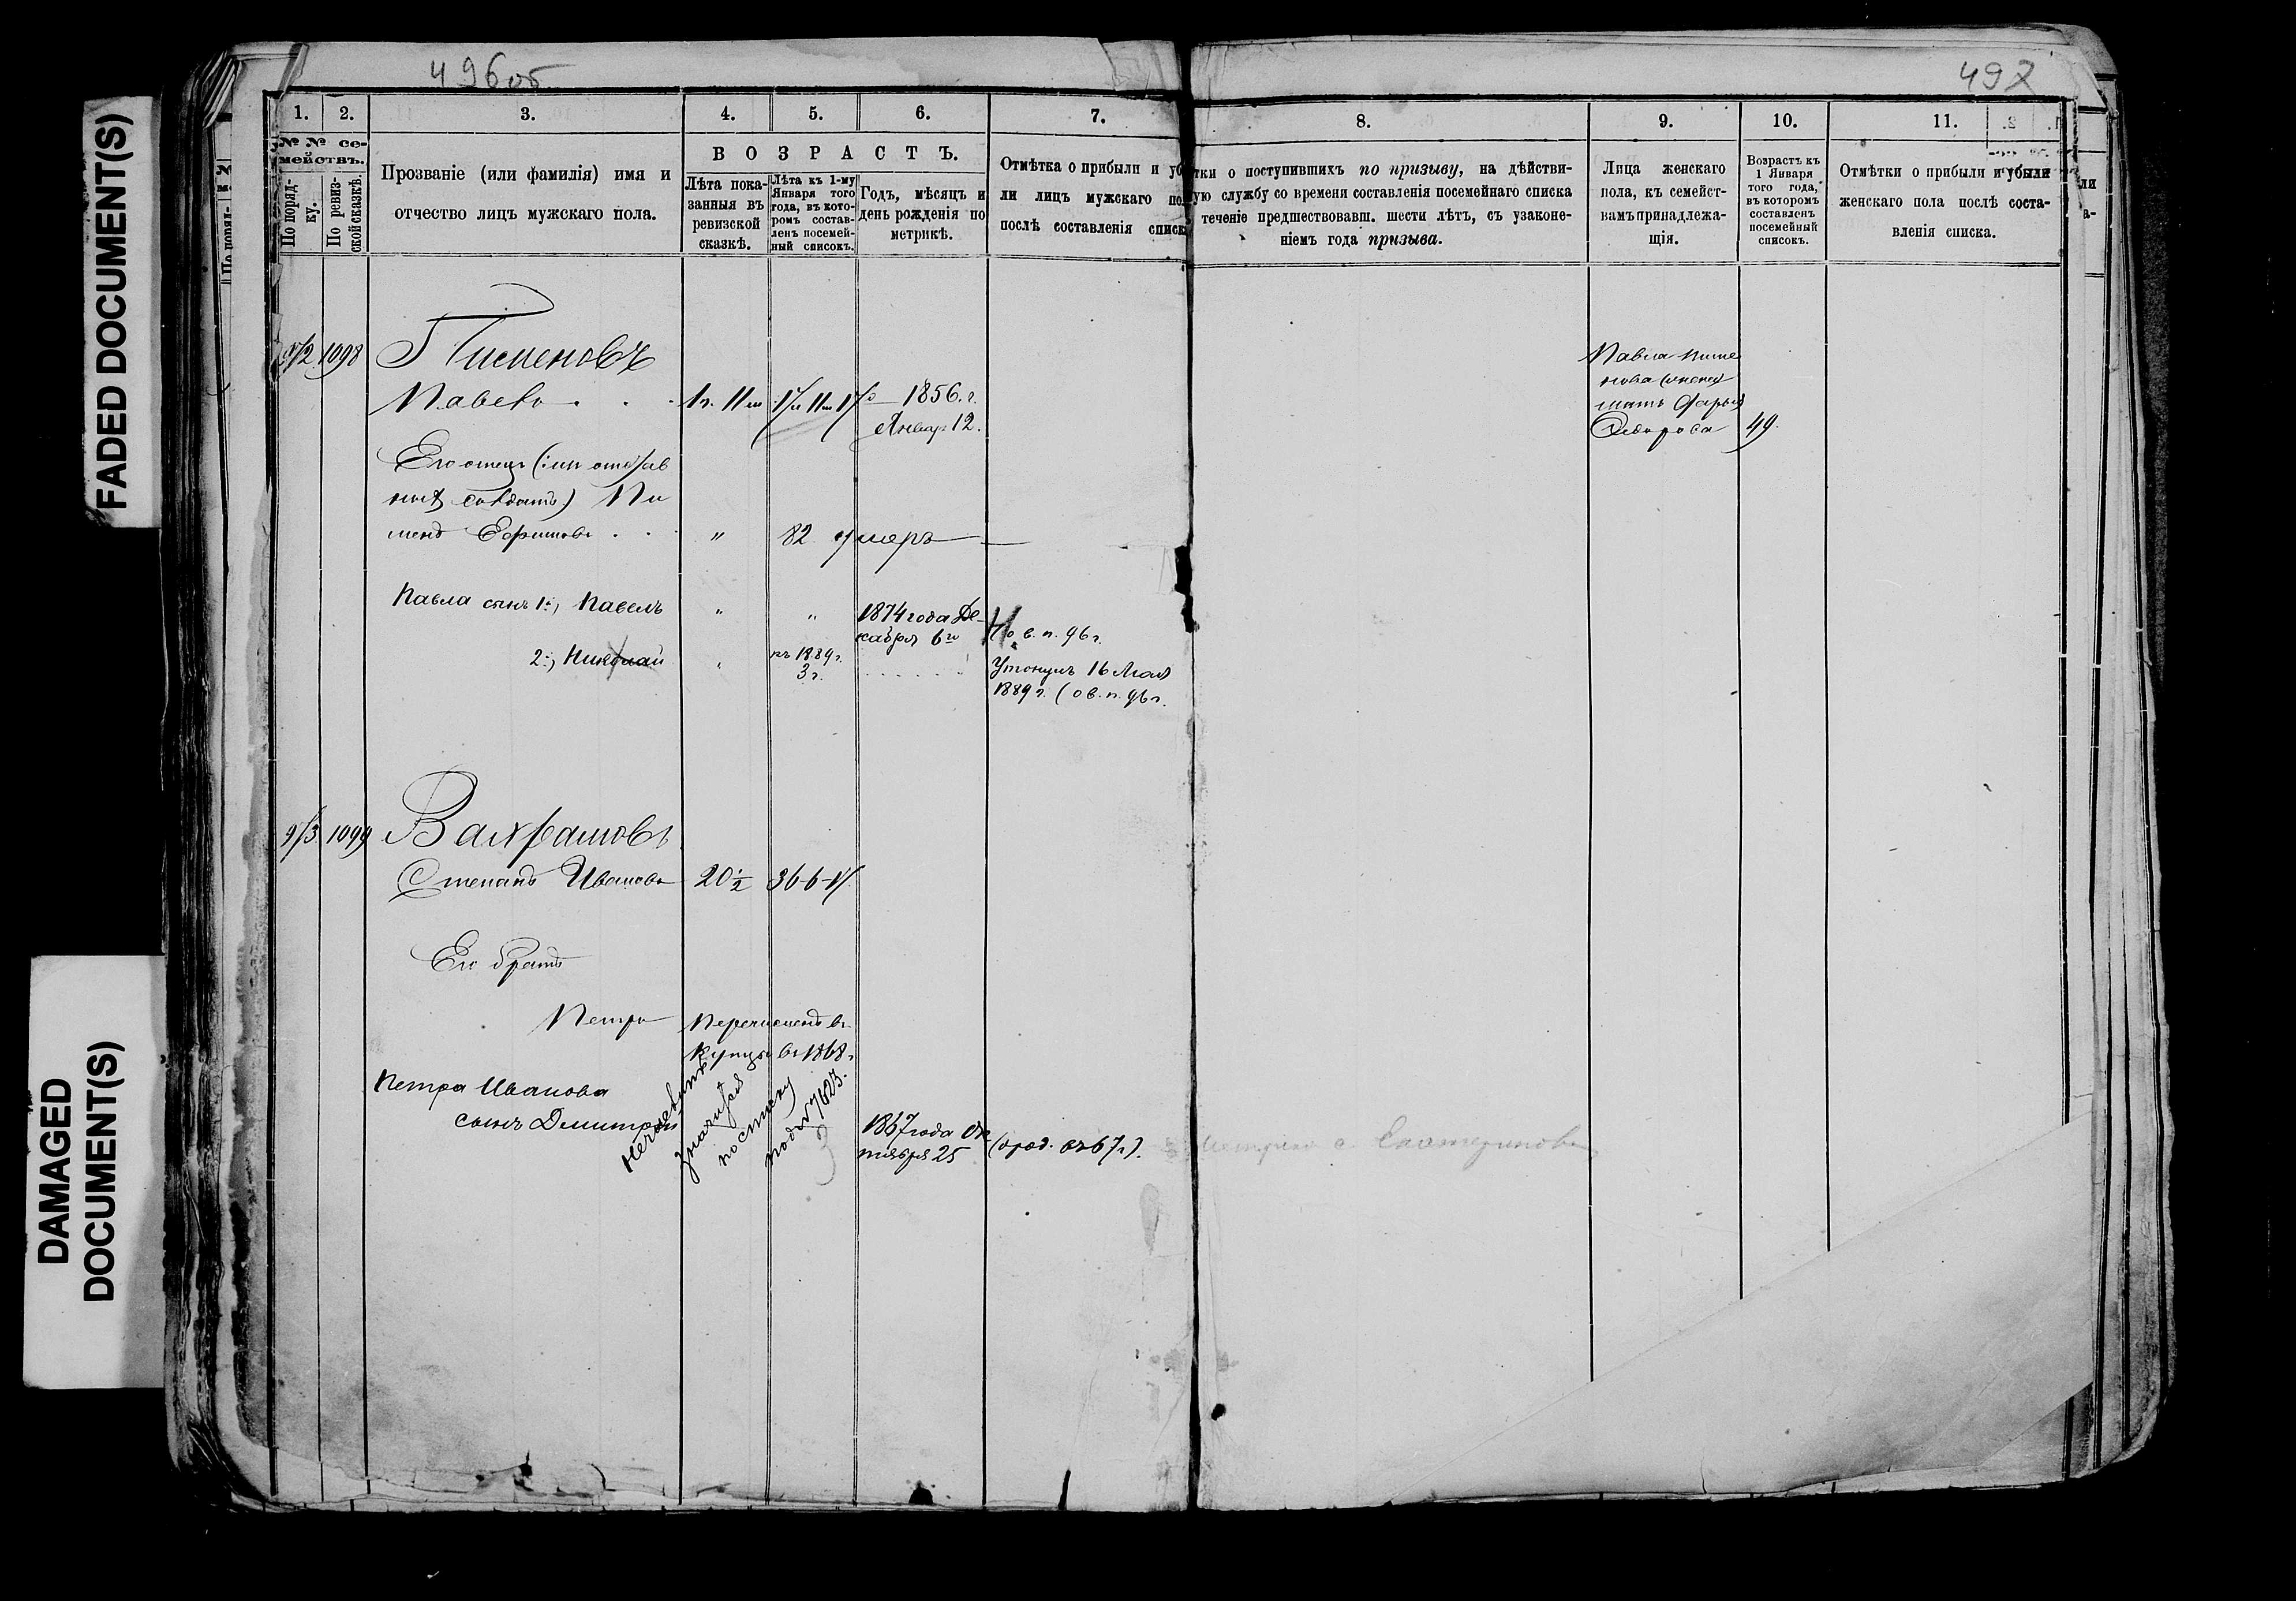 FADED DOCUMENT(S)
DAMAGED
DOCUMENT(S)
496об
497
1. 2. 3. 4. 5. 6. 7. 8. 9. 10. 11.
№ № се-
мействъ.
По поряд-
ку.
По ревиз-
ской сказкѣ.
Прозваніе (или фамилія) имя и
отчество лицъ мужскаго пола.
ВОЗРАСТЪ.
Лѣта пока-
занныя въ
ревизской
сказкѣ.
Лѣта къ 1-му
Января того
года, въ кото-
ромъ состав-
ленъ посемей-
ный списокъ.
Годъ, мѣсяцъ и
день рожденія по
метрикѣ.
Отмѣтка о прибыли и уб
ли лицъ мужскаго пол
послѣ составленія списк
тки о поступившихъ по призыву, на дѣйстви-
ую службу со времени составленія посемейнаго списка
теченіе предшествовавш. шести лѣтъ, съ узаконе-
ніемъ года призыва.
Лица женскаго
пола, къ семейст-
вамъ принадлежа-
щія.
Возрастъ къ
1 Января
того года,
въ которомъ
составленъ
посемейный
списокъ.
Отмѣтки о прибыли и убыли
женскаго пола послѣ соста-
вленія списка.
1098 Пименовъ
Павелъ 1г. 11м 1856. г.
Январ 12.
Его отецъ
солдатъ) Пи
менъ Ефимовъ 〃 82 умеръ
Павла сынъ 1й, Павелъ 〃 〃 1874 года Де-
кабря 6го о в. п. 96 г.
2й, Николай 〃 къ 1889 г.
3 г.
Утонулъ 16 Мая
1889 г. (о в. п. 96 г.
Павла Пиме
нова
мать Дарья
Ѳедорова 49.
1099 Вахрамовъ
Степанъ Ивановъ 20½ 36
Его братъ
Петръ Перечисленъ въ
купцы въ 1868 г
Петра Иванова
сынъ Димитрій
значится
по списку
под № 7623.
1867 года Ок
тября 25